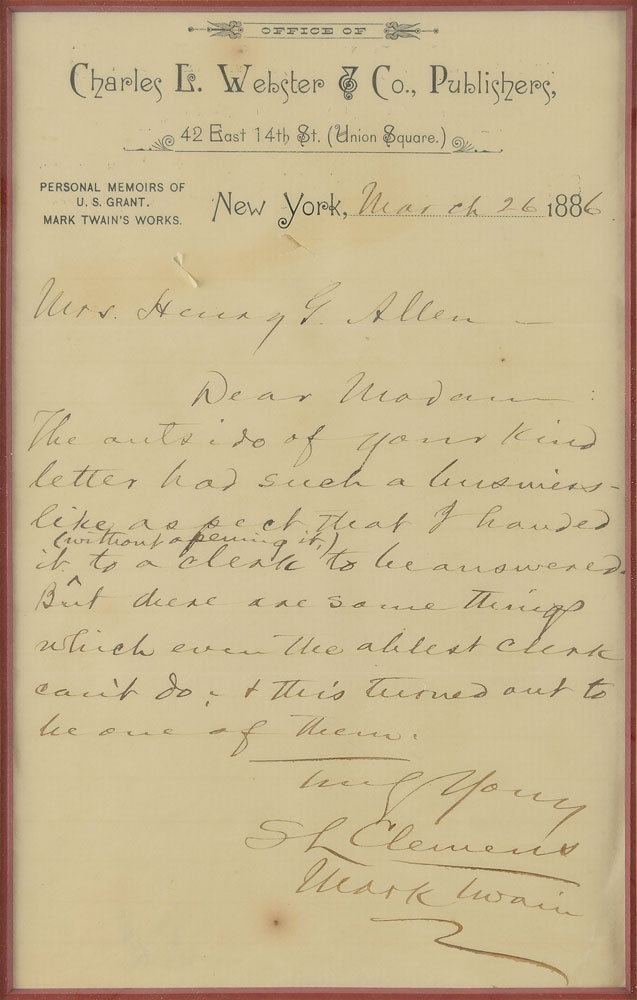 OFFICE OF
Charles L. Webster & Co., Publishers,
42 East 14th St. (Union Square.)
PERSONAL MEMOIRS OF
U. S. GRANT.
MARK TWAIN'S WORKS.
New York, March 26 1886
Mrs. Henry G. Allen —
Dear Madam:
The outside of your kind
letter had such a business-
like aspect that I handed
(without opening it,)
it to a clerk to be answered.
But there are some things
which even the ablest clerk
can't do; & this turned out to
be one of them.
Truly Yours
S L Clemens
Mark Twain